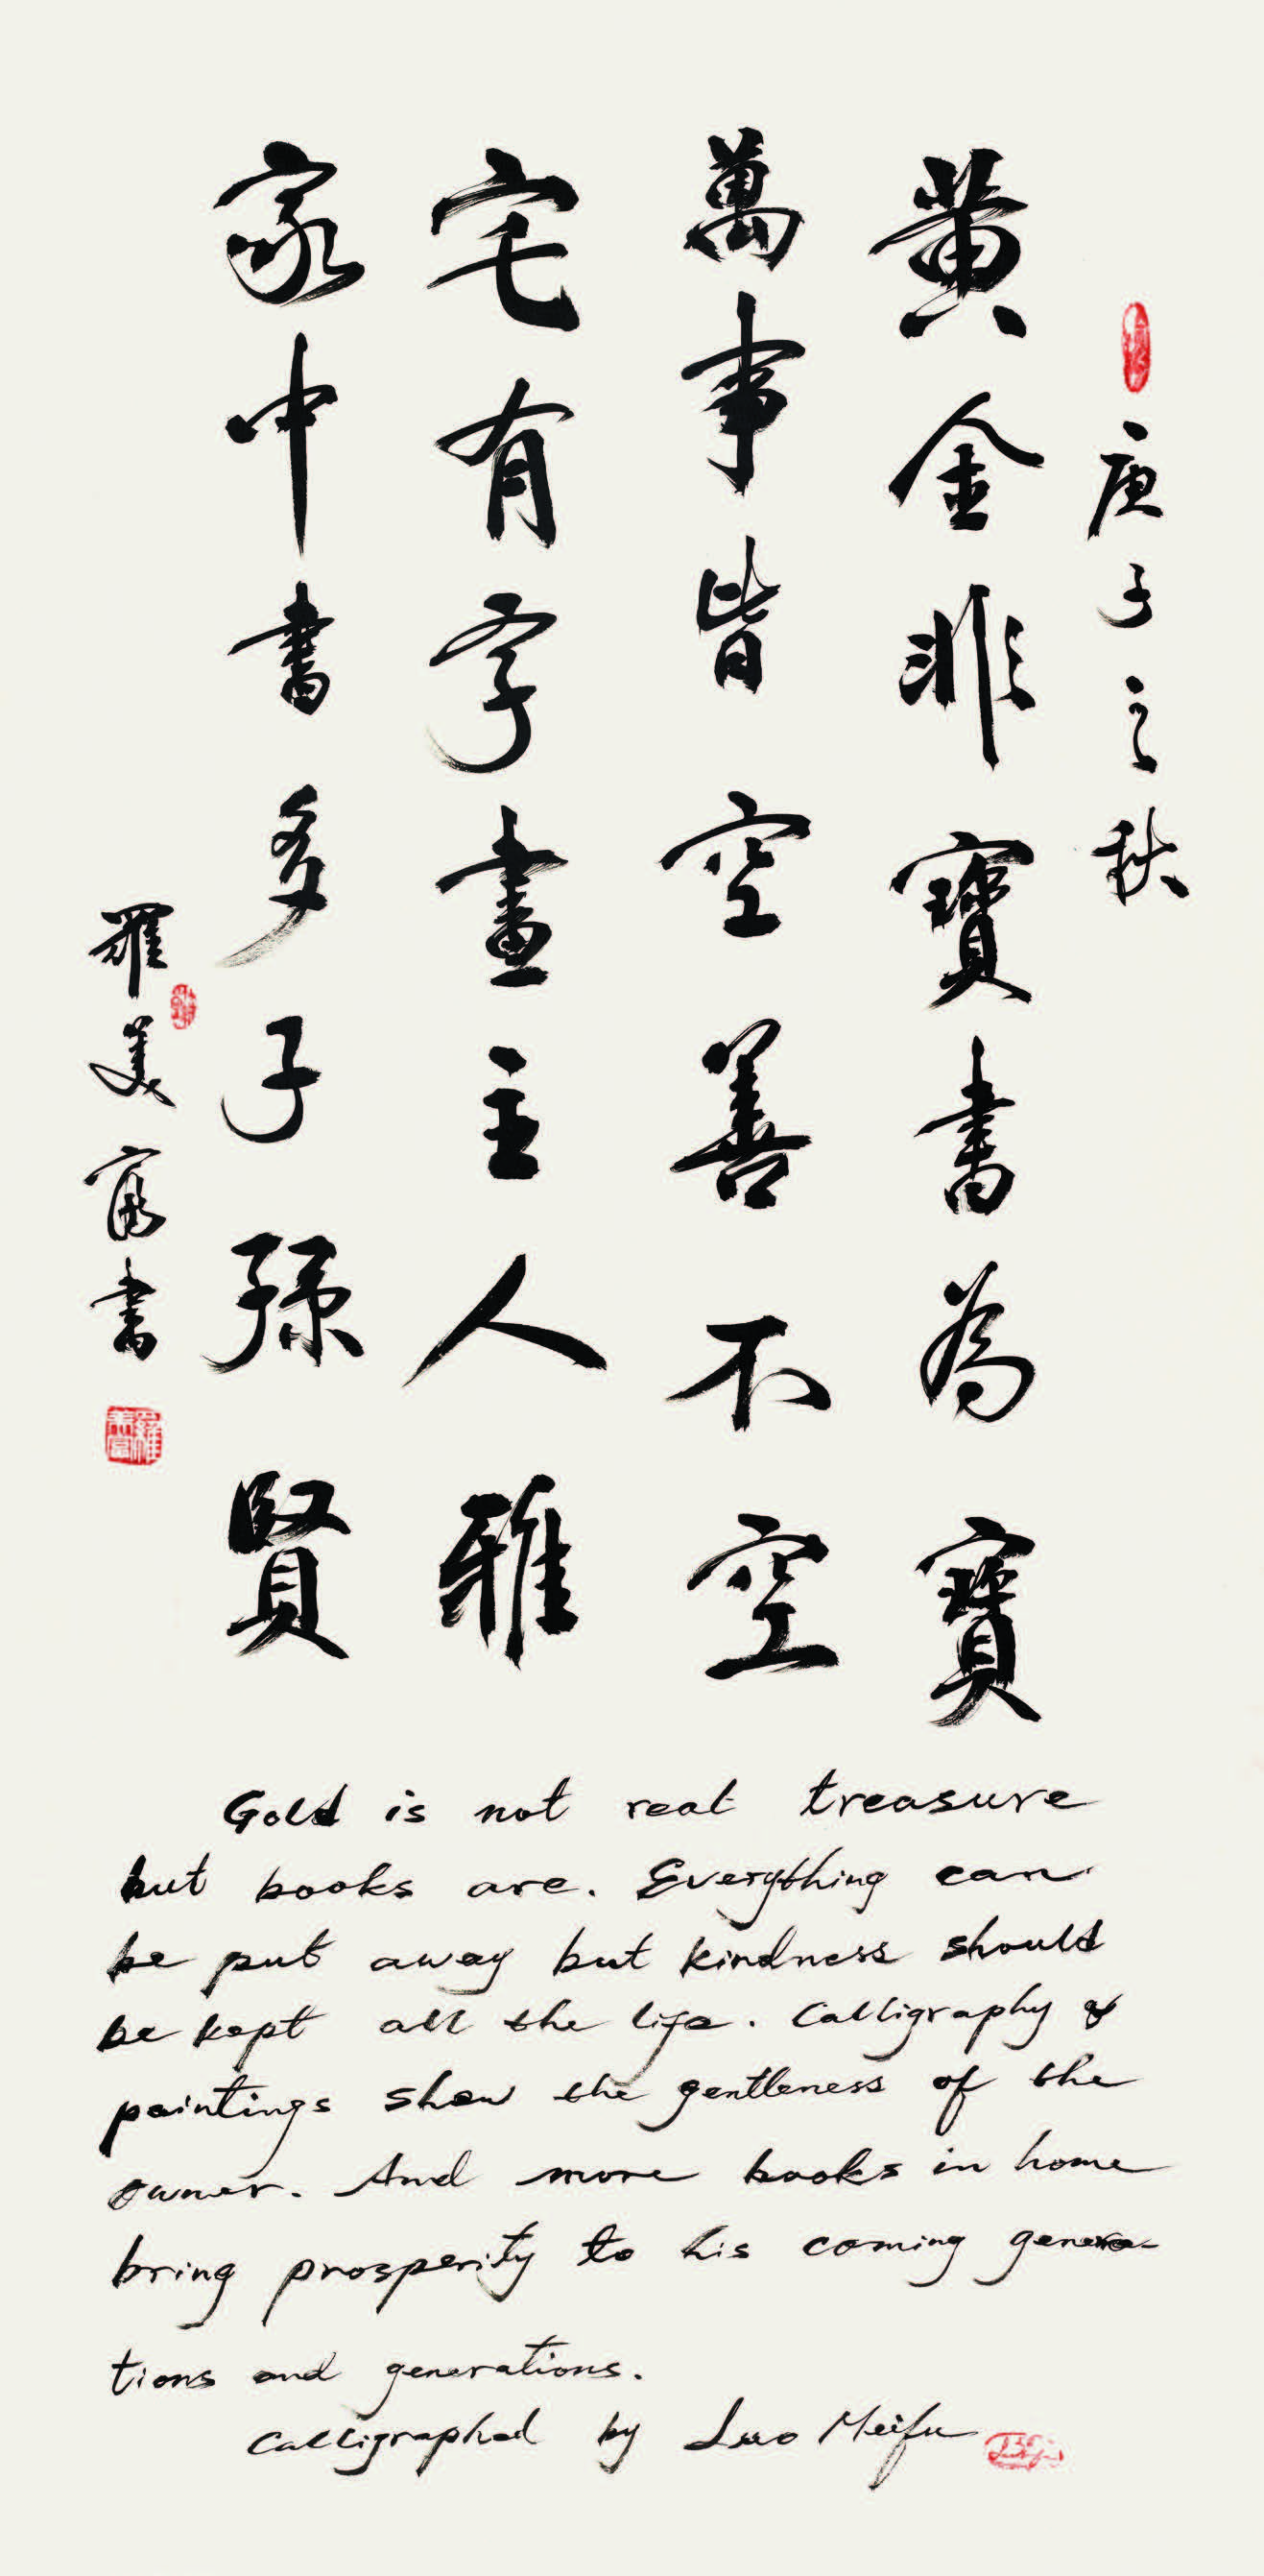 庚子之秋
黄金非寶書為寶
萬事皆空善不空
宅有字畫主人雅
家中書多子孫賢
羅美富書
羅美富
Gold is not real treasure
but books are. Everything can
be put away but kindness should
be kept all the life. Calligraphy &
paintings show the gentleness of the
owner. And more books in home
bring prosperity to his coming genera-
tions and generations.
Calligraphed by Luo Meifu